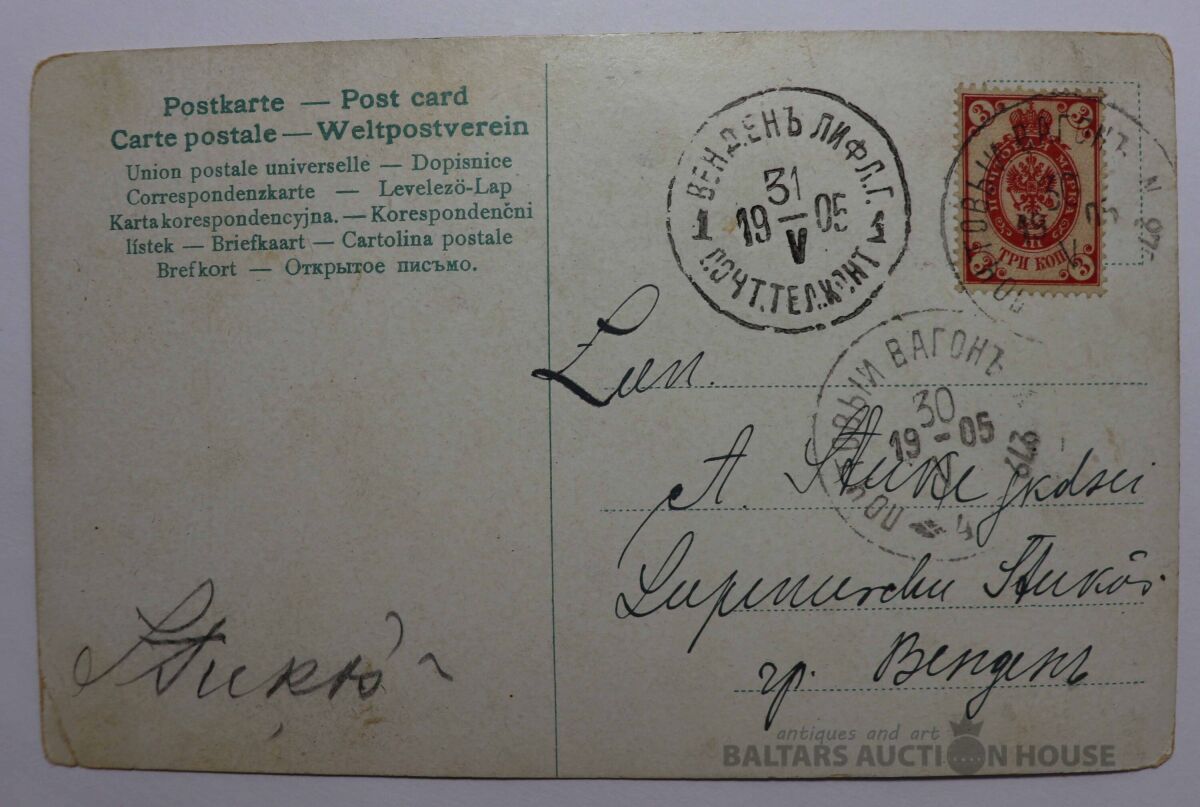 Postkarte — Post card
Carte postale — Weltpostverein
Union postale universelle — Dopisnice
Correspondenzkarte — Levelező-Lap
Karta korespondencyjna. — Korespondenčni
lístek — Briefkaart — Cartolina postale
Brefkort — Открытое письмо.
ВЕНДЕНЪ ЛИФЛ.Г.
31
1905
V
1 1
ПОЧТ.ТЕЛ.КОНТ.
3 3
ПОЧТОВАЯ МАРКА
ТРИ КОП.
3 3
ПОЧТОВЫЙ ВАГОНЪ
ПОЧТОВЫЙ ВАГОНЪ
30
19-05
Lien.
A. Stuke
Stukōs.
гр. Венденъ
antiques and art
BALTARS AUCTION HOUSE